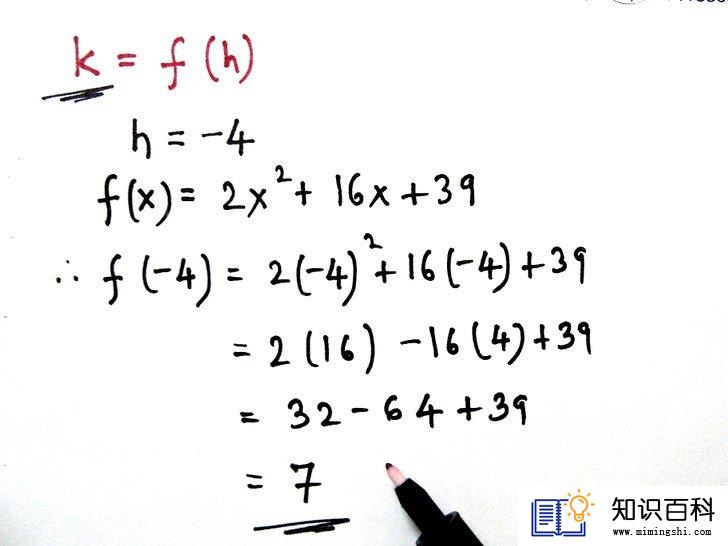 k = f (h)
h = -4
f(x) = 2x² + 16x + 39
∴ f (-4) = 2(-4)² + 16(-4) + 39
= 2(16) - 16(4) + 39
= 32 - 64 + 39
= 7
知识百科
www.mimingshi.com